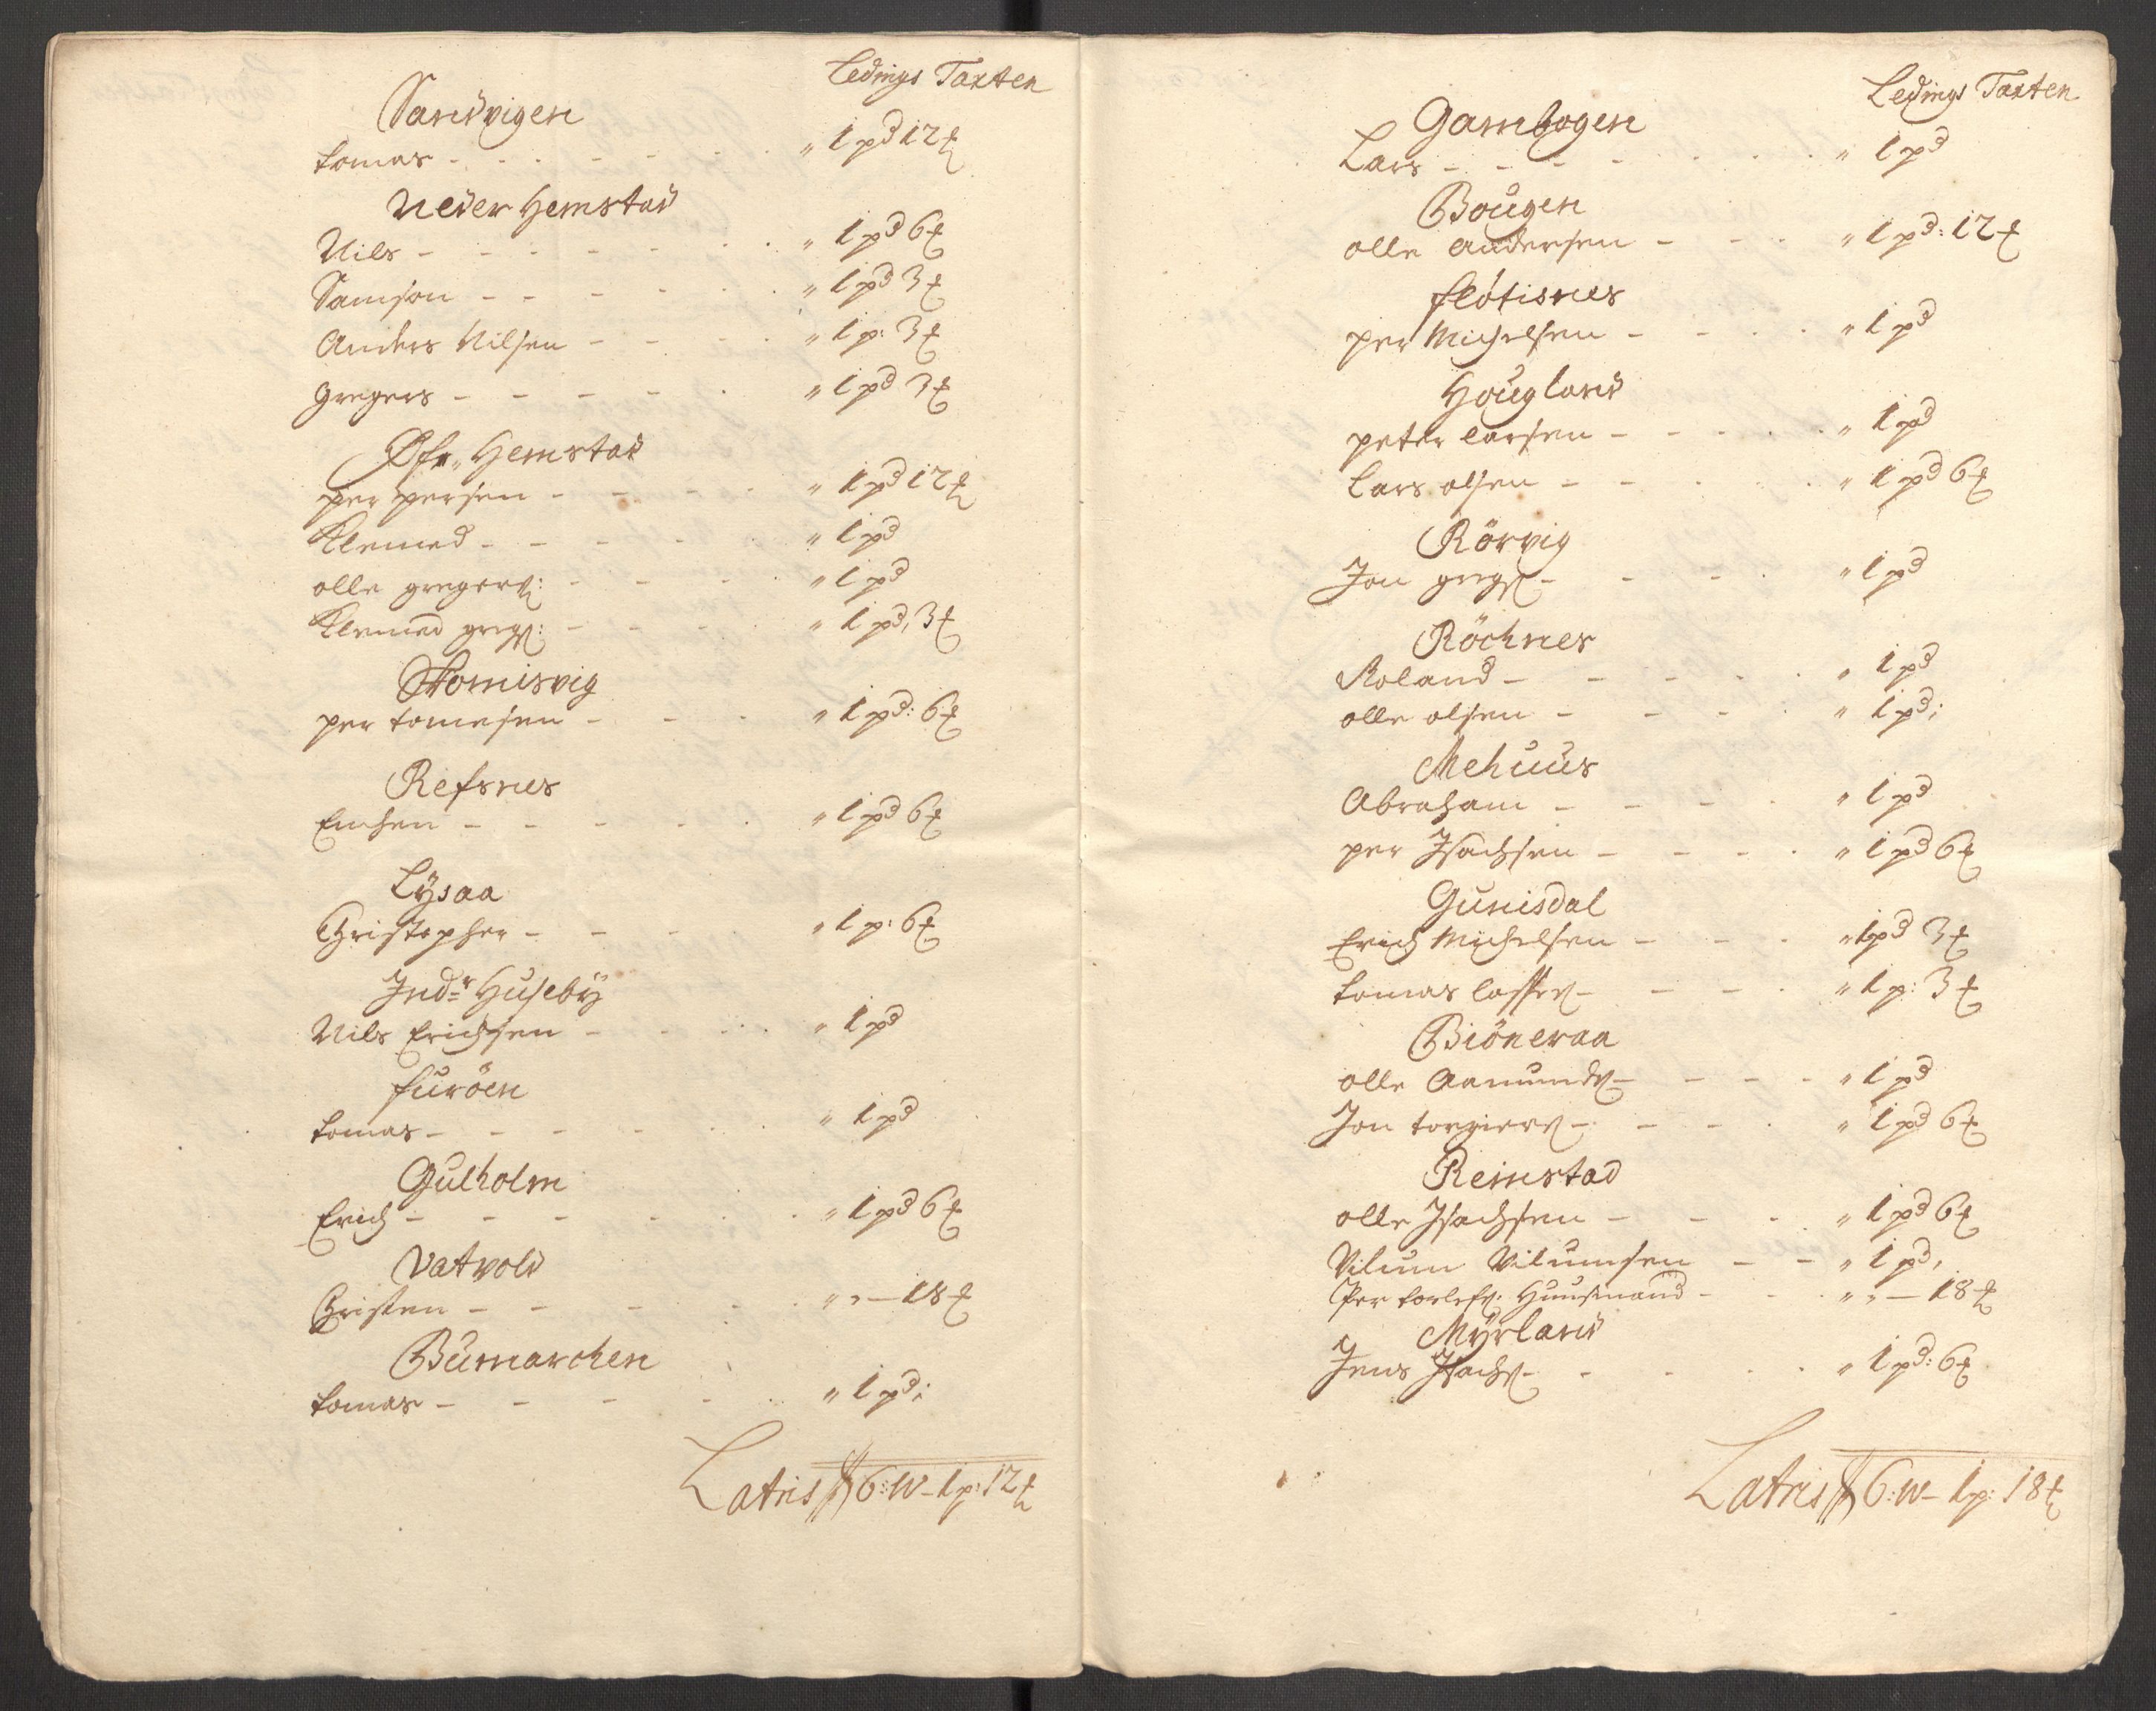 Ledings Taxten
Sandvigen
tomas - - - - - - „ 1 pd 12 ℔
Neder Hemstad
Nils - - - - - - „ 1 pd 6 ℔
Samson - - - - - „ 1 pd 3 ℔
Anders Nilsen - - - „ 1 p: 3 ℔
gregers - - - - - „ 1 pd 3 ℔
Øfr„ Hemstad
per persen - - - - „ 1 pd 12 ℔
Klemed - - - - - „ 1 pd
olle gregers: - - - - „ 1 pd
Klemed greg: - - - - „ 1 pd, 3 ℔
Stomisvig
per tomesen - - - „ 1 pd: 6 ℔
Refsnes
Einchen - - - - - „ 1 pd 6 ℔
Lÿsaa
Christopher - - - - „ 1 p: 6 ℔
Indr Husebÿ
Nils Erichsen - - - - „ 1 pd
furöen
tomas - - - - - - „ 1 pd
Gulholm
Erich - - - - - - „ 1 pd 6 ℔
Vatvold
Christen - - - - - „ „ - 18 ℔
Bumarchen
tomas - - - - - - „ 1 pd;
Latris 6: W - 1 p: 12 ℔
Ledings Taxten
Gambogen
Lars - - - - - - „ 1 pd
Bougen
olle Andersen - - - „ 1 pd: 12 ℔
flötisnes
per Michelsen - - - - „ 1 pd
Hougland
peter Larsen - - - - - „ 1 pd
Lars olsen - - - - - „ 1 pd 6 ℔
Rörvig
Jon gregs - - - - „ 1 pd
Röchnes
Roland - - - - - - „ 1 pd
olle olsen - - - - „ 1 pd;
Mehuus
Abraham - - - - „ 1 pd
per Isachsen - - - - „ 1 pd 6 ℔
Gunisdal
Erich Michelsen - - - „ 1 pd 3 ℔
tomas lasses - - - - „ 1 p: 3 ℔
Biöneraa
olle Aamunds - - - - „ 1 pd
Jon torgiers - - - - „ 1 pd 6 ℔
Reinstad
olle Isachsen - - - „ 1 pd 6 ℔
Vilum Vilumsen - - „ 1 pd,
Per torlefs: Huusmand - - „ „ - 18 ℔
Mÿrland
Jens Isachs - - - - - „ 1 pd: 6 ℔
Latris 6: W - 1 p: 18 ℔